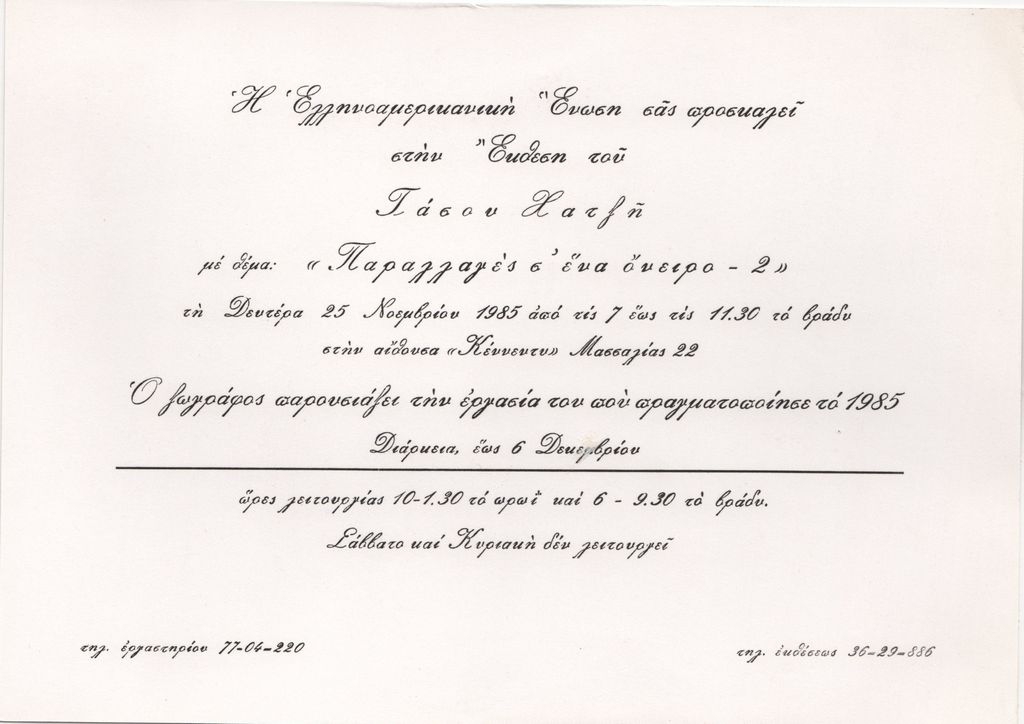 Ἡ Ἑλληνοαμερικανική Ἕνωση σᾶς προσκαλεῖ
στήν Ἔκθεση τοῦ
Τάσου Χατζῆ
μέ θέμα: «Παραλλαγές σ' ἕνα ὄνειρο - 2»
τή Δευτέρα 25 Νοεμβρίου 1985 ἀπό τίς 7 ἕως τίς 11.30 τό βράδυ
στήν αἴθουσα «Κέννεντυ» Μασσαλίας 22
Ὁ ζωγράφος παρουσιάζει τήν ἐργασία του πού πραγματοποίησε τό 1985
Διάρκεια, ἕως 6 Δεκεμβρίου
ὧρες λειτουργίας 10-1.30 τό πρωΐ καί 6 - 9.30 τό βράδυ.
Σάββατο καί Κυριακή δέν λειτουργεῖ
τηλ. ἐργαστηρίου 77-04-220
τηλ. ἐκθέσεως 36-29-886